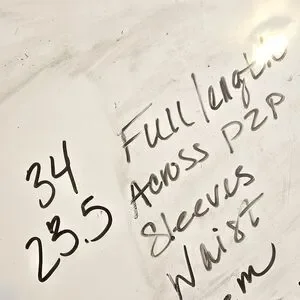 34 Full length
23.5 Across P2P
Sleeves
Waist